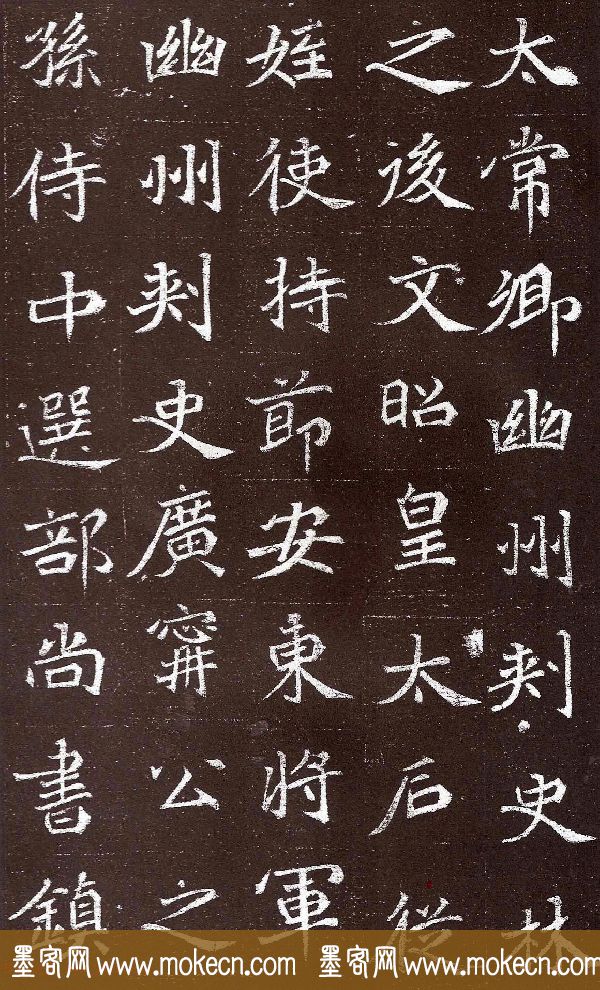 太常卿幽州刺史林
之後文昭皇太后從
姪使持節安東將軍
幽州刺史廣甯公之
孫侍中選部尚書鎮
墨客网 www.mokecn.com 墨客网 www.mokecn.com